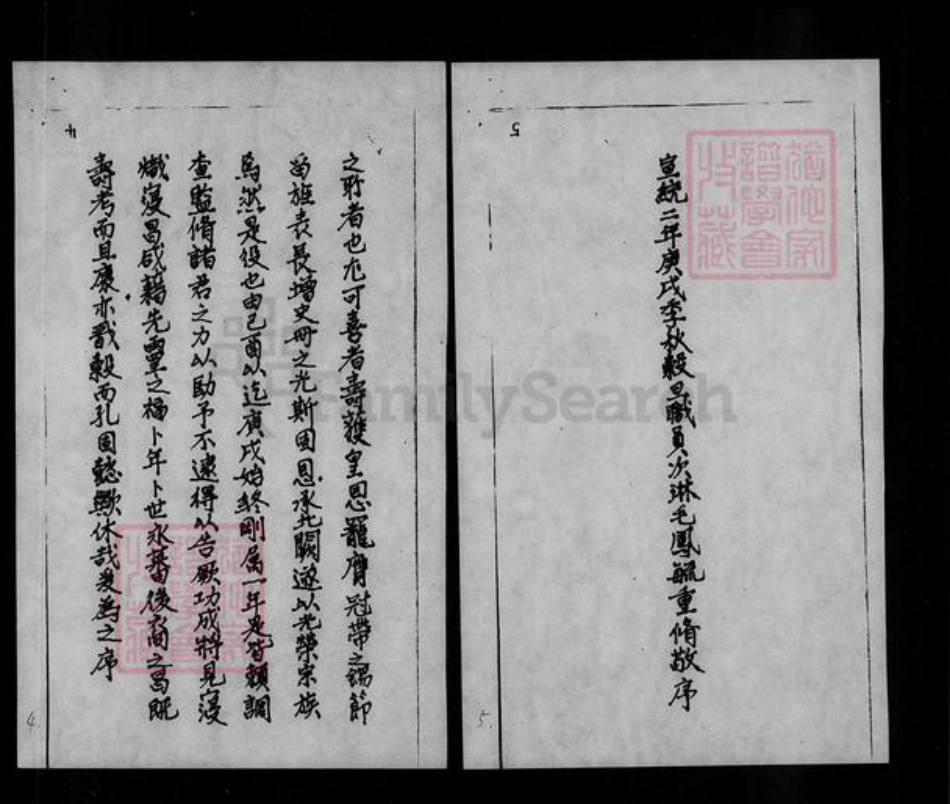 之耵者也尤可喜者壽獲皇恩寵膺冠帶之錫節
留旌表長增史冊之光斯固恩承北闕遂以光榮宗族
焉然是役也由己酉以迄庚戌始終剛屆一年是皆賴調
查監脩諸君之力以助予不逮得以告厥功成將見寖
熾寖昌咸藉先靈之福卜年卜世永基後裔之昌既
壽考而且康亦戩穀而孔固懿歟休哉爰為之序
4
宣統二年庚戌季秋穀旦職員次琳毛鳳毓重脩敬序
5
5
FamilySearch